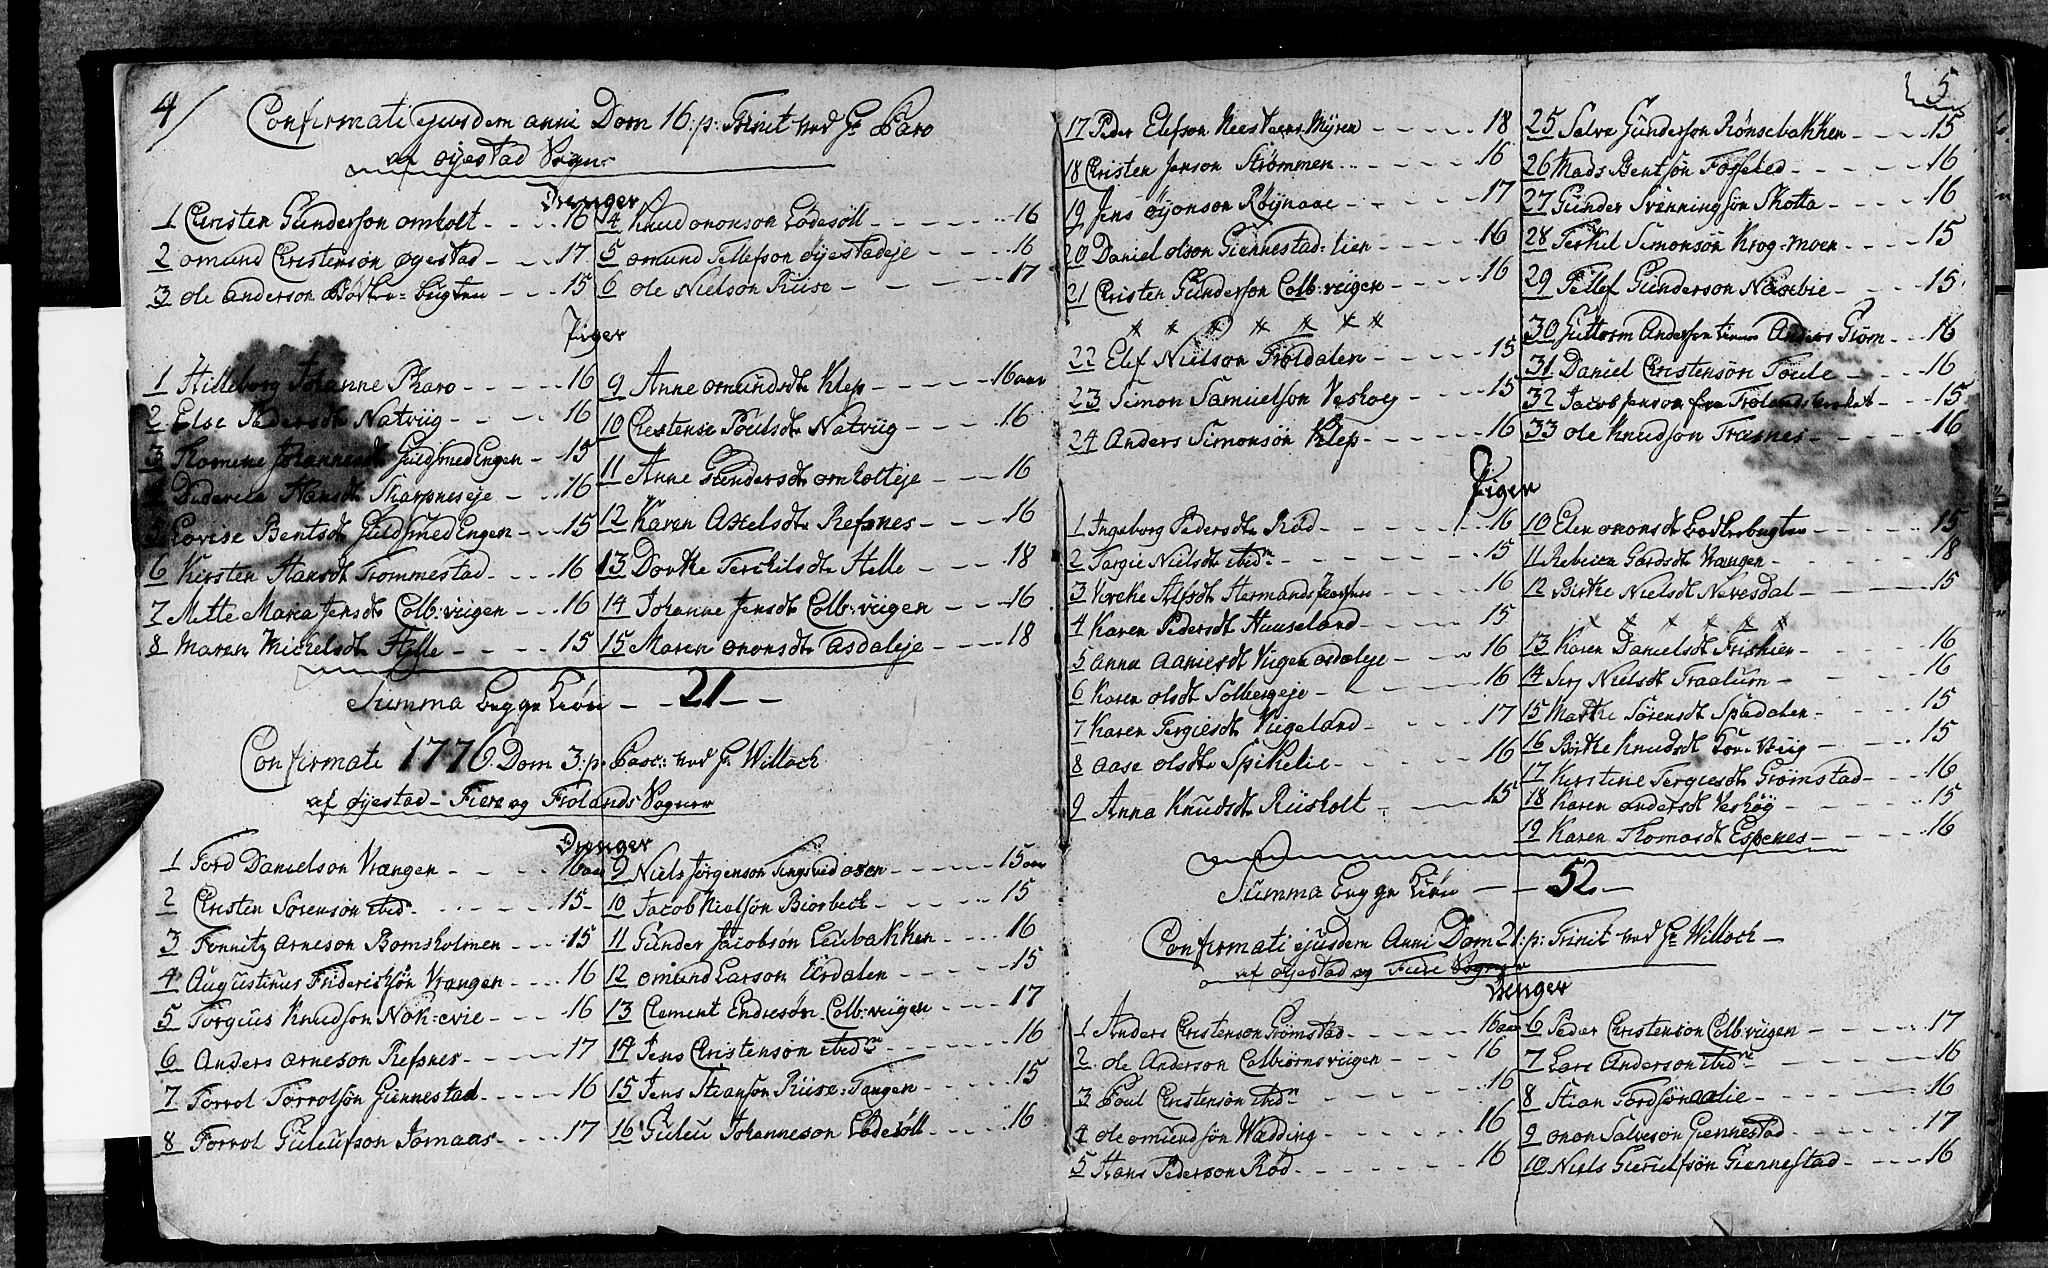 4/
Confirmati ejusdem anni Dom 16. p. Trinit ved Hr Faro
af Øyestad Sogn
Drenger
1 Christen Gunderson Omholt - - - 16
2 Omund Christensøn Øyestad - - 17
3 Ole Anderson - bugten - - - 15
4 Knud Ononson Lødesøll - - - - - 16
5 Omund Tellefson Øyestadeje - - - 16
6 Ole Nielson Riise - - - 17
Piger
1 Hilleborg Johanne Pharo - - - - 16
2 Else Pedersdt Natviig - - - 16
3 Johannesdt GuldsmedEngen - 15
4 Diderica Hansdt Skarpneseje - - 16
5 Lovise Bentsdt GuldsmedEngen - - 15
6 Kirsten Hansdt Trommestad - - - 16
7 Mette Maria Jensdt Colb: viigen - - 16
8 Maren Michelsdt Helle - - - 15
9 Anne Omundsdt Klep - - - - - 16 aar
10 Chestense Poulsdt Natviig - - - - 16
11 Anne Gundersdt Omholteje - - - 16
12 Karen Axelsdt Refsnes - - - - 16
13 Dorthe Terchilsdt Helle - - - 18
14 Johanne Jensdt Colb: viigen - - - 16
15 Maren Ononsdt Asdaleje - - - 18
Summa begge Kiøn - - 21 - -
Confirmati 1776. Dom 3. p. Pasc: ved Hr Willoch
af Øyestad - Fiere og Frolands Sogner
Drenger
1 Tord Danielson Vrangen - - - 16 aar
2 Christen Sørensøn ibid - - - - 15 -
3 Fennitz Arneson Bomsholmen - - - 15
4 Augustinus Friderichsøn Vrangen - - - 16
5 Torgius Knudson Nok-evie - - - 16
6 Anders Arneson Refsnes - - - - 17
7 Torrol Torrolsøn Giennestad - - - 16
8 Torrol Guleufson Jomaas - - - 17
9 Niels Jørgenson Tingsved osen - - - - 15 aar
10 Jacob Nielsøn Biorbech - - - - 15
11 Gunder Jacobsøn Leubakken - - - 16
12 Omund Larson Urdalen - - - - 15
13 Clement Endresøn Colb: viigen - - - 17
14 Jens Christensøn ibidm - - - - 16
15 Jens Steanson Riise: Tangen - - - 15
16 Guleu Johanneson Lødesøll - - - 16
5
17 Peder Elefson Myren - - - - 18
18 Christen Jenson Strømmen - - - - 16
19 Jens Øyonson Røynaae - - - - 17
20 Daniel Olson Giennestad: lien - - - 16
21 Christen Gunderson Colb: viigen - - - 16
22 Elef Nielson Troldalen - - - - 15
23 Simon Samuelson Veshoy - - - - 15
24 Anders Simonsøn Klep - - - - 16
25 Salve Gunderson Rønsebakken - - - 15
26 Mads Bentsøn Fosseled - - - - 16
27 Gunder Svenningsøn Skotta - - - 16
28 Terkil Simonsøn Krog-moen - - - 15
29 Tellef Gunderson Næsbie - - - 15
30 Guttorm Anderson Anders Grom - - 16
31 Daniel Christensøn Toule - - - - 16
32 Jacob Jenson fra Frolands Verket - - - 15
33 Ole Knudson Træsnes - - - - 16
Piger
1 Ingeborg Pedersdt Rød - - - 16
2 Targie Nielsdt ibidm - - - - 15
3 Virche Alfsdt - - - 16
4 Karen Pedersdt Huuseland - - - 15
5 Anna Aaniesdt Viigen Asdaleje - - 16
6 Karen Olsdt Solbergeje - - - 16
7 Karen Tergiesdt Viigeland - - - 17
8 Aase Olsdt Spikelie - - - - 16
9 Anna Knudsdt Riisholt - - - 15
10 Elen Ononsdt Bodkerbugten - - - 15
11 Rebecca Gordsdt Vrangen - - - - 18
12 Birthe Nielsdt Nevesdal - - - 15
13 Karen Danielsdt Friskien - - - 16
14 Nielsdt Traalum - - - - 16
15 Marthe Sørensdt Spadalen - - - 15
16 Birthe Knudsdt Tor-Viig - - - 15
17 Kirstine Tergiesdt Grømstad - - - 16
18 Karen Andersdt Veshøy - - - 15
19 Karen Thomasdt Espenes - - - - 16
Summa begge Kiøn - - 52 -
Confirmati ejusdem Anni Dom 21. p: Trinit ved Hr Willoch -
af Øyestad og Fiere Sogner
Drenger
1 Anders Christenson Grømstad - - - 16 aar
2 Ole Anderson Colbiørnsviigen - - - 16
3 Poul Christensøn ibidm - - - 16
4 Ole Omundsøn Wadding - - - 16
5 Hans Pederson Rød - - - - 16
6 Peder Christensøn Colb: viigen - - - 17
7 Lars Anderson ibidm - - - 16
8 Stian Tordsøn Aalie - - - 16
9 Onon Salveson Giennestad - - - 17
10 Niels Gierulfsøn Giennestad - - - 16